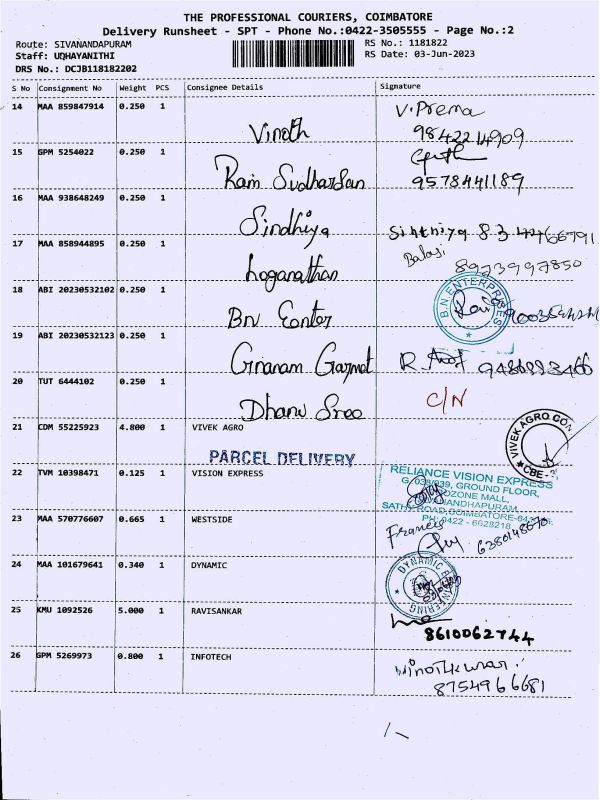 THE PROFESSIONAL COURIERS, COIMBATORE
Delivery Runsheet - SPT - Phone No.:0422-3505555 - Page No.:2
Route: SIVANANDAPURAM RS No.: 1181822
Staff: UDHAYANITHI RS Date: 03-Jun-2023
DRS No.: DCJB118182202
S No Consignment No Weight PCS Consignee Details Signature
14 MAA 859847914 0.250 1 Vinoth V.Prema
9842214909
15 GPM 5254022 0.250 1 Ram Sudharsan
9578441189
16 MAA 938648249 0.250 1 Sindhiya Sinthiya
17 MAA 858944895 0.250 1 Loganathan Balaji
8973997850
18 ABI 20230532102 0.250 1 Bn Enter B.N.ENTERPRISES
19 ABI 20230532123 0.250 1 Gnanam Garmet R.
20 TUT 6444102 0.250 1 Dhanu Sree C/N
21 CDM 55225923 4.800 1 VIVEK AGRO VIVEK AGRO CON
CBE
PARCEL DELIVERY
22 TVM 10398471 0.125 1 VISION EXPRESS RELIANCE VISION EXPRESS
GROUND FLOOR,
MALL,
SATHY ROAD, COIMBATORE-
PH: 0422 - 6628218
23 MAA 570776607 0.665 1 WESTSIDE Francis
6380148670
24 MAA 101679641 0.340 1 DYNAMIC DYNAMIC
25 KMU 1092526 5.000 1 RAVISANKAR
8610062744
26 GPM 5269973 0.800 1 INFOTECH Vinothkumar
8754966681